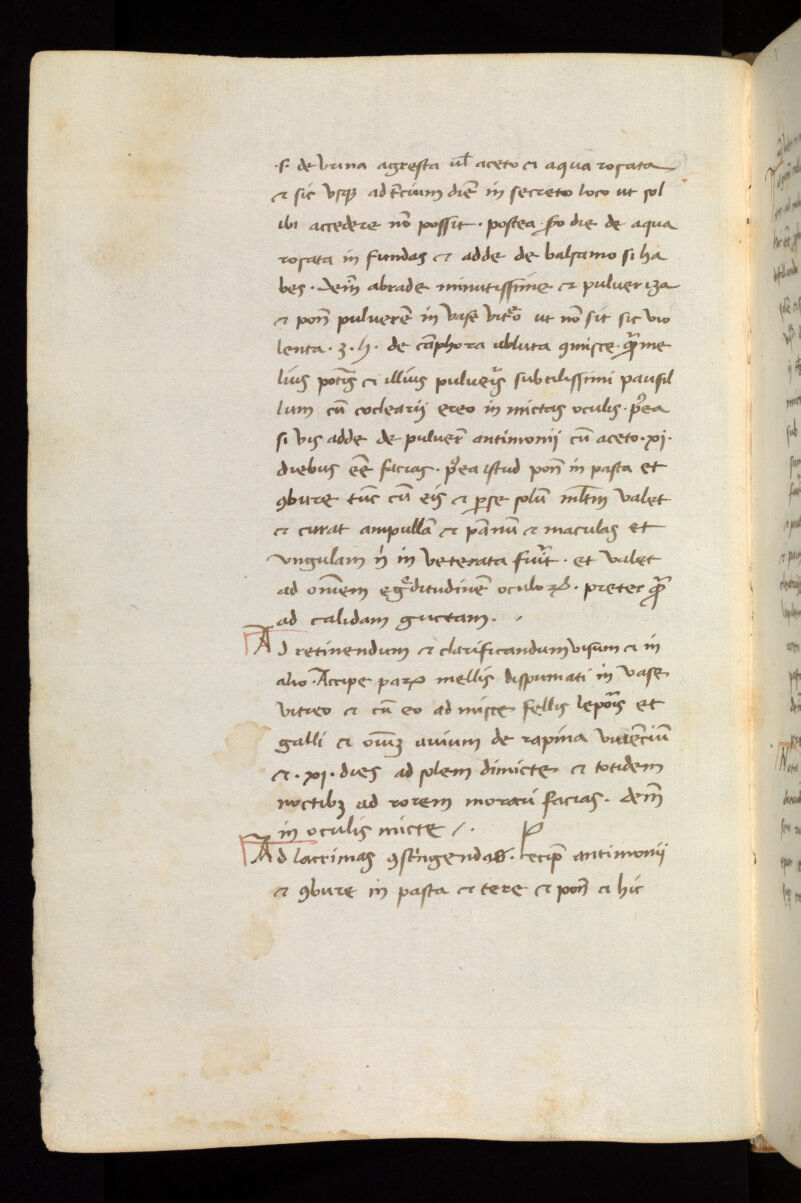 ·s· de vrina agresta ul̄ aceto et aqua rosata
et sic vsqꝫ ad t̄cium diē in secreto loco ut sol
ibi accedere nō possit · postea die de aqua
rosata in fundas et adde de balsamo si ha
bes · dem̄ abrade minutissime et pulueriza
et pon̄ puluerē in vase vitͦ ut nō sit sic vio
lenta · ʒ · de cāphora abluta ꝯmisce me
lius potis et illius pulueris subtilissimi pausil
lum cū coclearij ereo in mictas oculis · pͦea
si vis adde de puluer̄ antimonij cū aceto · xi ·
diebus eē facias · pͦea istud pon̄ in pasta et
ꝯbure tūc cū eis et ꝑse solū ml̄tm valet
et curat ampullā et pānū et maculas et
vngulam n̄ in veterata fuit · et valet
ad om̄em egditudinē oculoꝝ · preter
ad calidam guttam ·
Ad retinendum et clarificandum visum et in
alio · Accipe paꝝ mellis dispumati in vase
vitreo et cū eo ad misce fellis leporis et
galli et om̄iꝫ auium de rapina viuenciū
et · xi · dies ad solem dimicte et totidem
noctibꝫ ad rorem morari facias · dem̄
in oculis micte / ·
Ad lacrimas ꝯstringendas · recip̄ antimonij
et ꝯbure in pasta et tere et pon̄ et hic